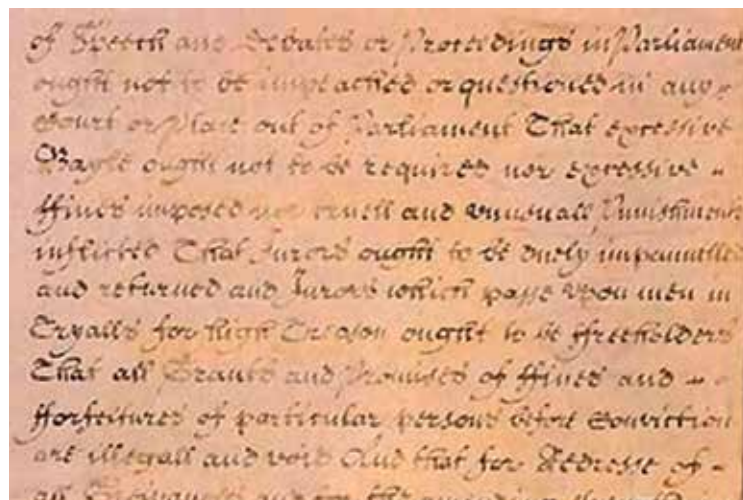 of Speech and Debates or Proceedings in Parliament
ought not to be impeached or questioned in any
Court or Place out of Parliament That excessive
Bayle ought not to be required nor excessive
ffines imposed nor cruell and unusuall Punishments
inflicted That Jurors ought to be duely impannelled
and returned and Jurors which passe upon men in
Tryalls for high Treason ought to be ffreeholders
That all Grants and Promises of ffines and
fforfeitures of particular persons before Conviction
are illegall and void And that for Redresse of
all Grievances and for the amending